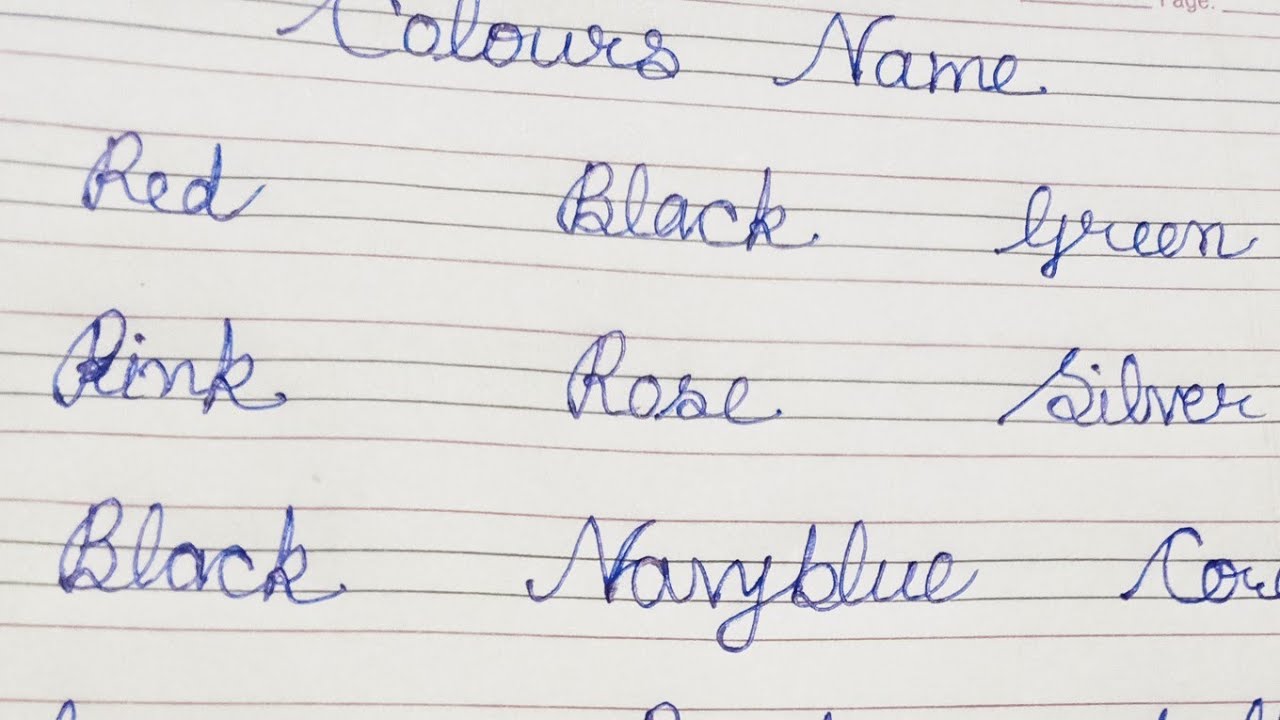 Page:
Colours Name
Red Black Green
Pink Rose Silver
Black Navyblue